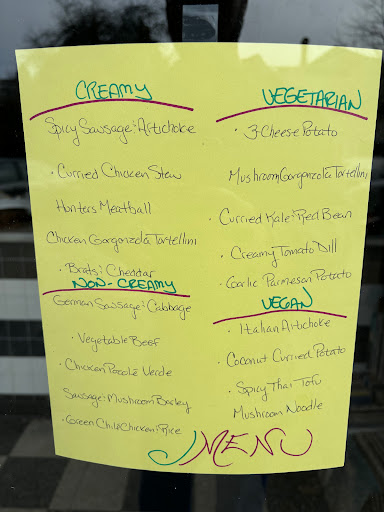 CREAMY
Spicy Sausage & Artichoke
• Curried Chicken Stew
Hunters Meatball
Chicken Gorgonzola Tortellini
• Brats & Cheddar
NON-CREAMY
German Sausage & Cabbage
• Vegetable Beef
• Chicken Pozolé Verde
Sausage & Mushroom Barley
• Green Chili Chicken & Rice
VEGETARIAN
• 3-Cheese Potato
Mushroom Gorgonzola Tortellini
• Curried Kale & Red Bean
• Creamy Tomato Dill
• Garlic Parmesan Potato
VEGAN
• Italian Artichoke
• Coconut Curried Potato
• Spicy Thai Tofu
Mushroom Noodle
MENU